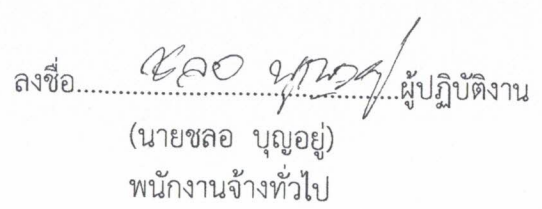 ลงชื่อ ชลอ บุญอยู่ ผู้ปฏิบัติงาน
(นายชลอ บุญอยู่)
พนักงานจ้างทั่วไป